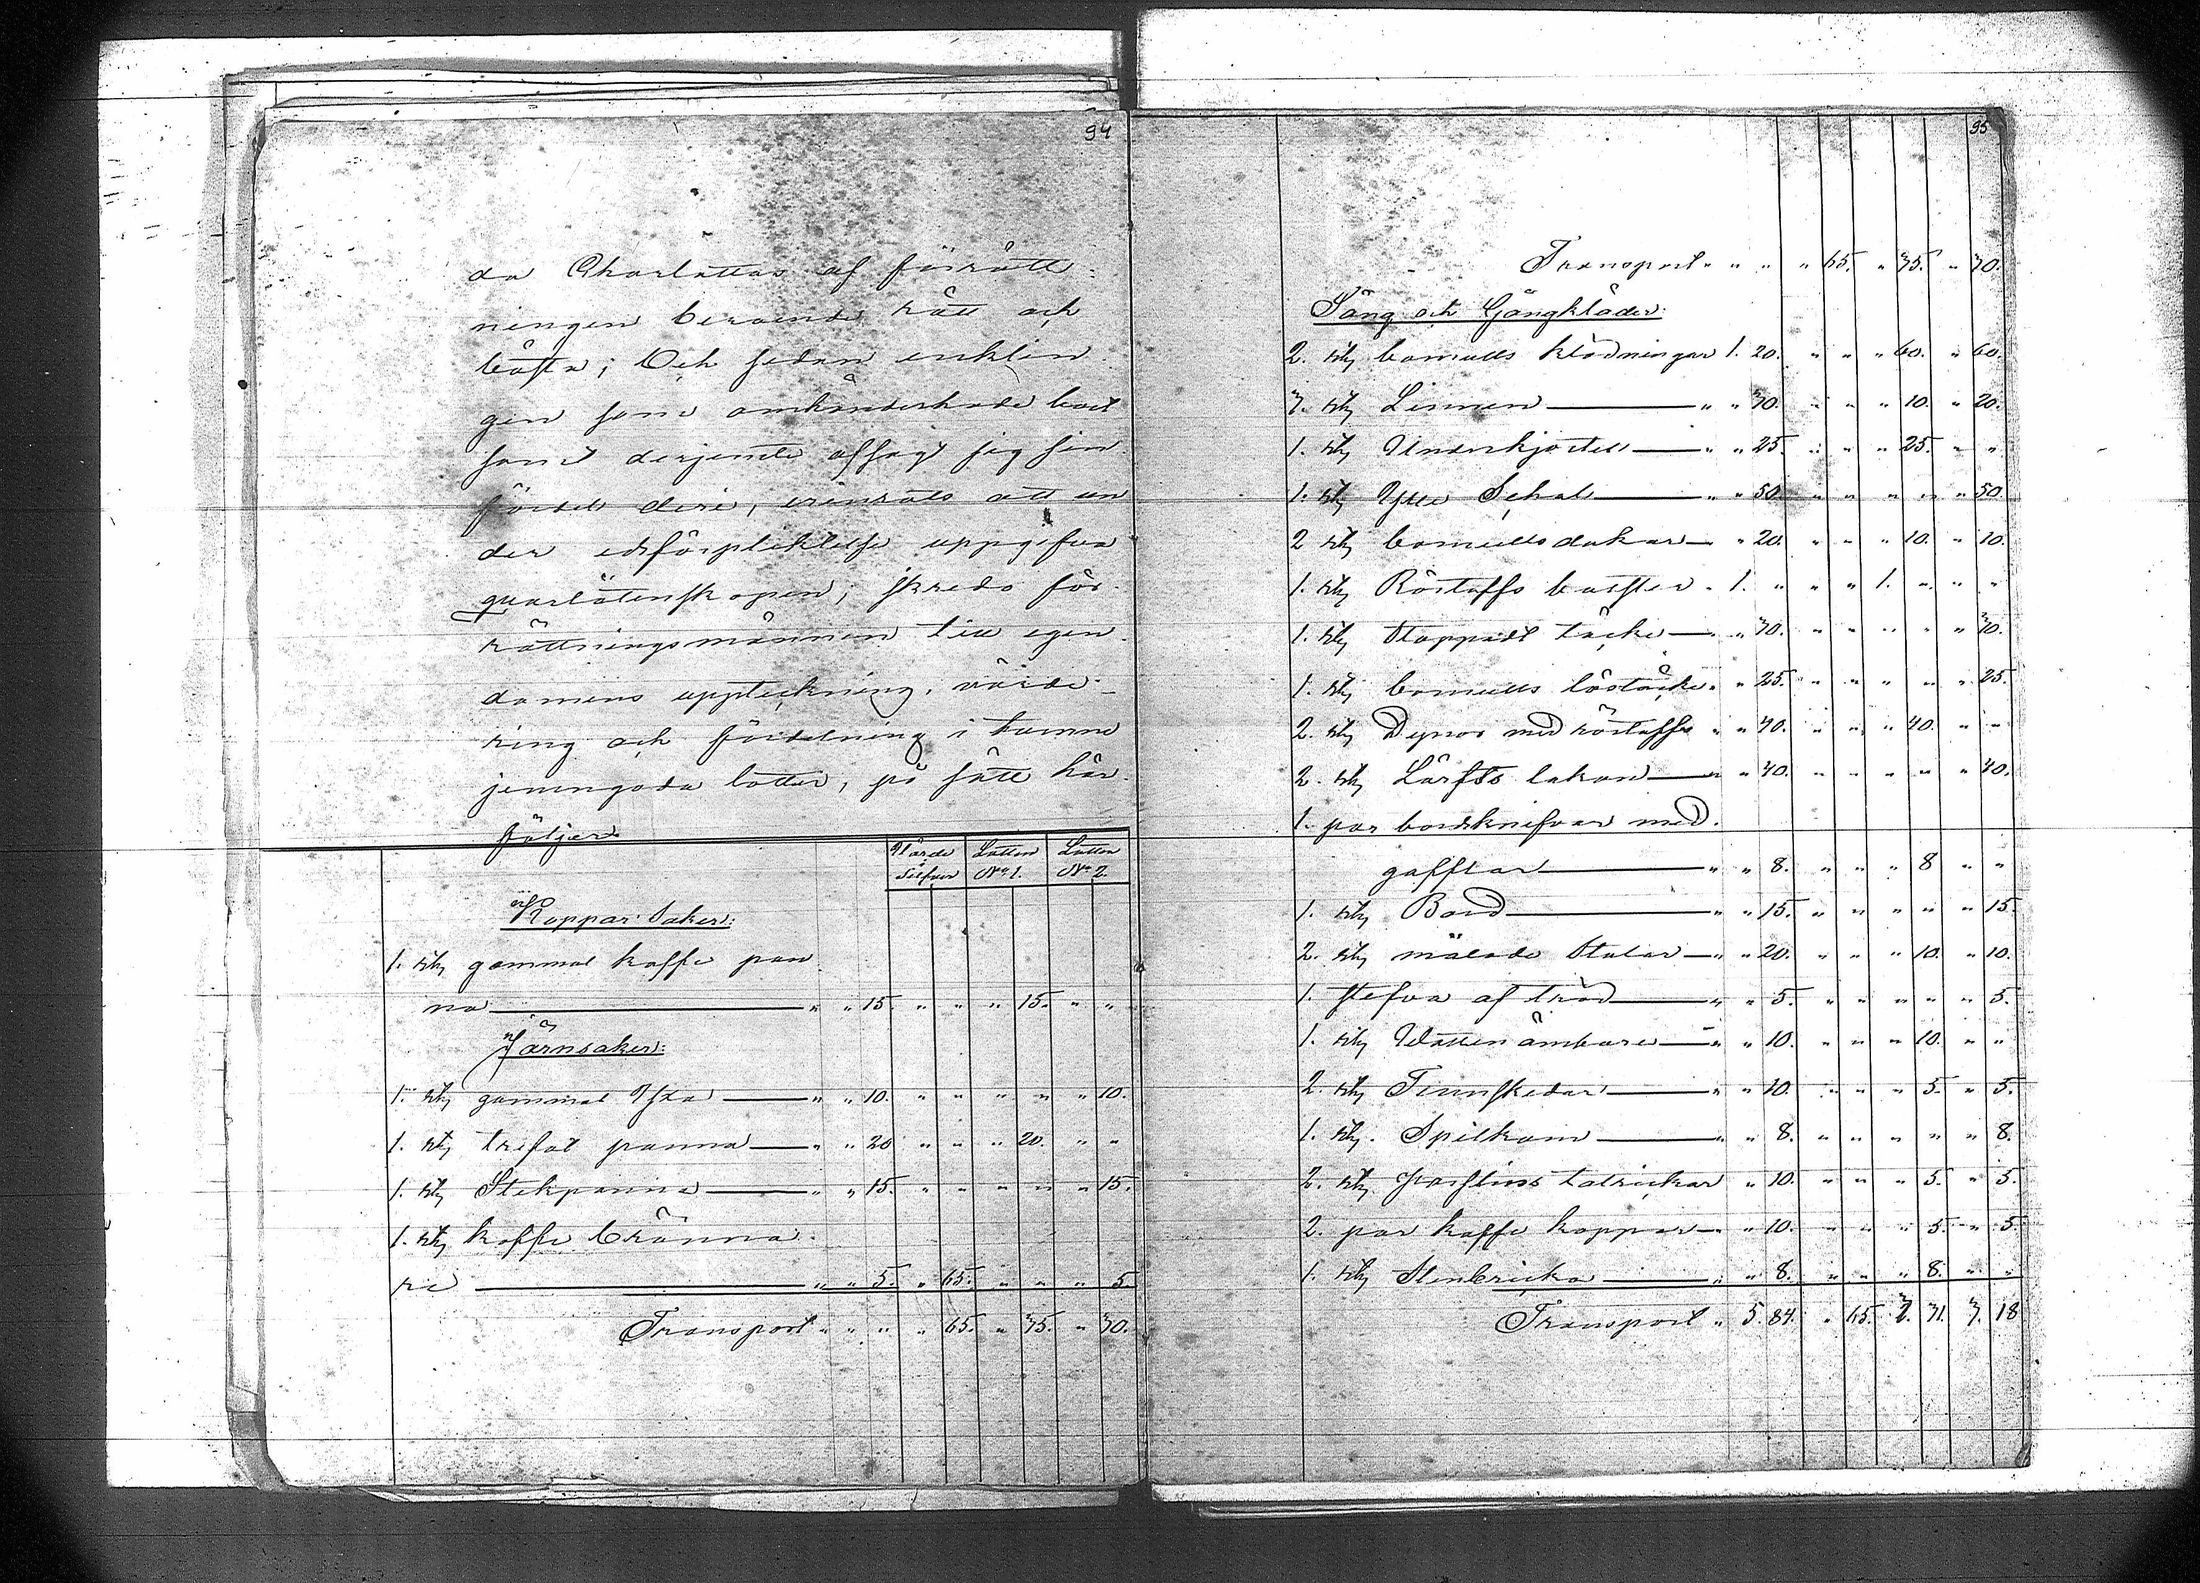 94
da Charlottas af förrätt-
ningen beroende rätt och
bästa; Och sedan enklin-
gen som omhänderhade boet
samt derjemte afsagt sig sin
fördel deri, erinrats att un
der edsförpliktelse uppgifva
qvarlåtenskapen; skredo för-
rättningsmännen till egen-
domens uppteckning, värde-
ring och fördelning i tvenne
jemngoda lotter, på sätt här-
följer.
Värde Silfver Lotten No 1. Lotten No 2.
Koppar Saker:
1. st. gammal kaffe pan-
na " " 15. " " " 15. " "
Järnsaker:
1. st. gammal Yxa " " 10. " " " " " 10.
1. st. trefot panna " " 20 " " " 20. " "
1. st. Stekpanna " " 15. " " " " " 15.
1. st. kaffe bränna-
re " " 5. " 65. " " " 5.
Transport " " " " 65. " 75. " 70.
95
Transport " " " " 65. " 75. " 70.
Säng och Gångkläder:
2. st. bomulls klädningar 1. 20. " " " 60. " 60.
7. st. Linnen " " 70. " " " 10. " 20.
1. st. Underkjortel " " 25. " " " 25. " "
1. st. Ylle Schal " " 50. " " " " " 50.
2 st. bomulls dukar " 20. " " " 10. " 10.
1. st. Röstoffs bolster " 1. " " " 1. " " "
1. st. Stoppadt täcke " " 70. " " " " " 70.
1. st. bomulls löstäcke " " 25. " " " " " 25.
2. st. Dynor med röstoffs " " 40. " " " 40. " "
2. st. Lärfts lakan " " 40. " " " " " 40.
1. par bordsknifvar med
gafflar " " 8. " " " 8 " "
1. st. Bord " " 15. " " " " " 15.
2. st. målade Stolar " " 20. " " " 10. " 10.
1. stefva af träd " " 5. " " " " " 5.
1. st. Vatten ämbare " " 10. " " " 10. " "
2. st. Tennskedar " " 10. " " " 5. " 5.
1. st. Spilkom " " 8. " " " " " 8.
2. st. porslins talrickar " 10. " " " 5. " 5.
2. par kaffe koppar " " 10. " " " 5. " 5.
1. st. Stenbricka " " 8. " " " 8. " "
Transport " 5. 84. " 65. 71. 18